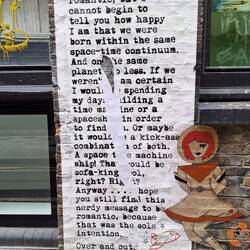 romantic, but I
cannot begin to
tell you how happy
I am that we were
born within the same
space-time continuum.
And on the same
planet no less. If we
weren't certain
I would spending
my days building a
time machine or a
spaceship in order
to find. Or maybe
it would a kick-ass
combination of both.
A space machine
ship! That would be
sofa-king ool,
right? Right?
Anyway .... hope
you still find this
nerdy message to be
romantic, because
that was the sole
intention.
Over and out,